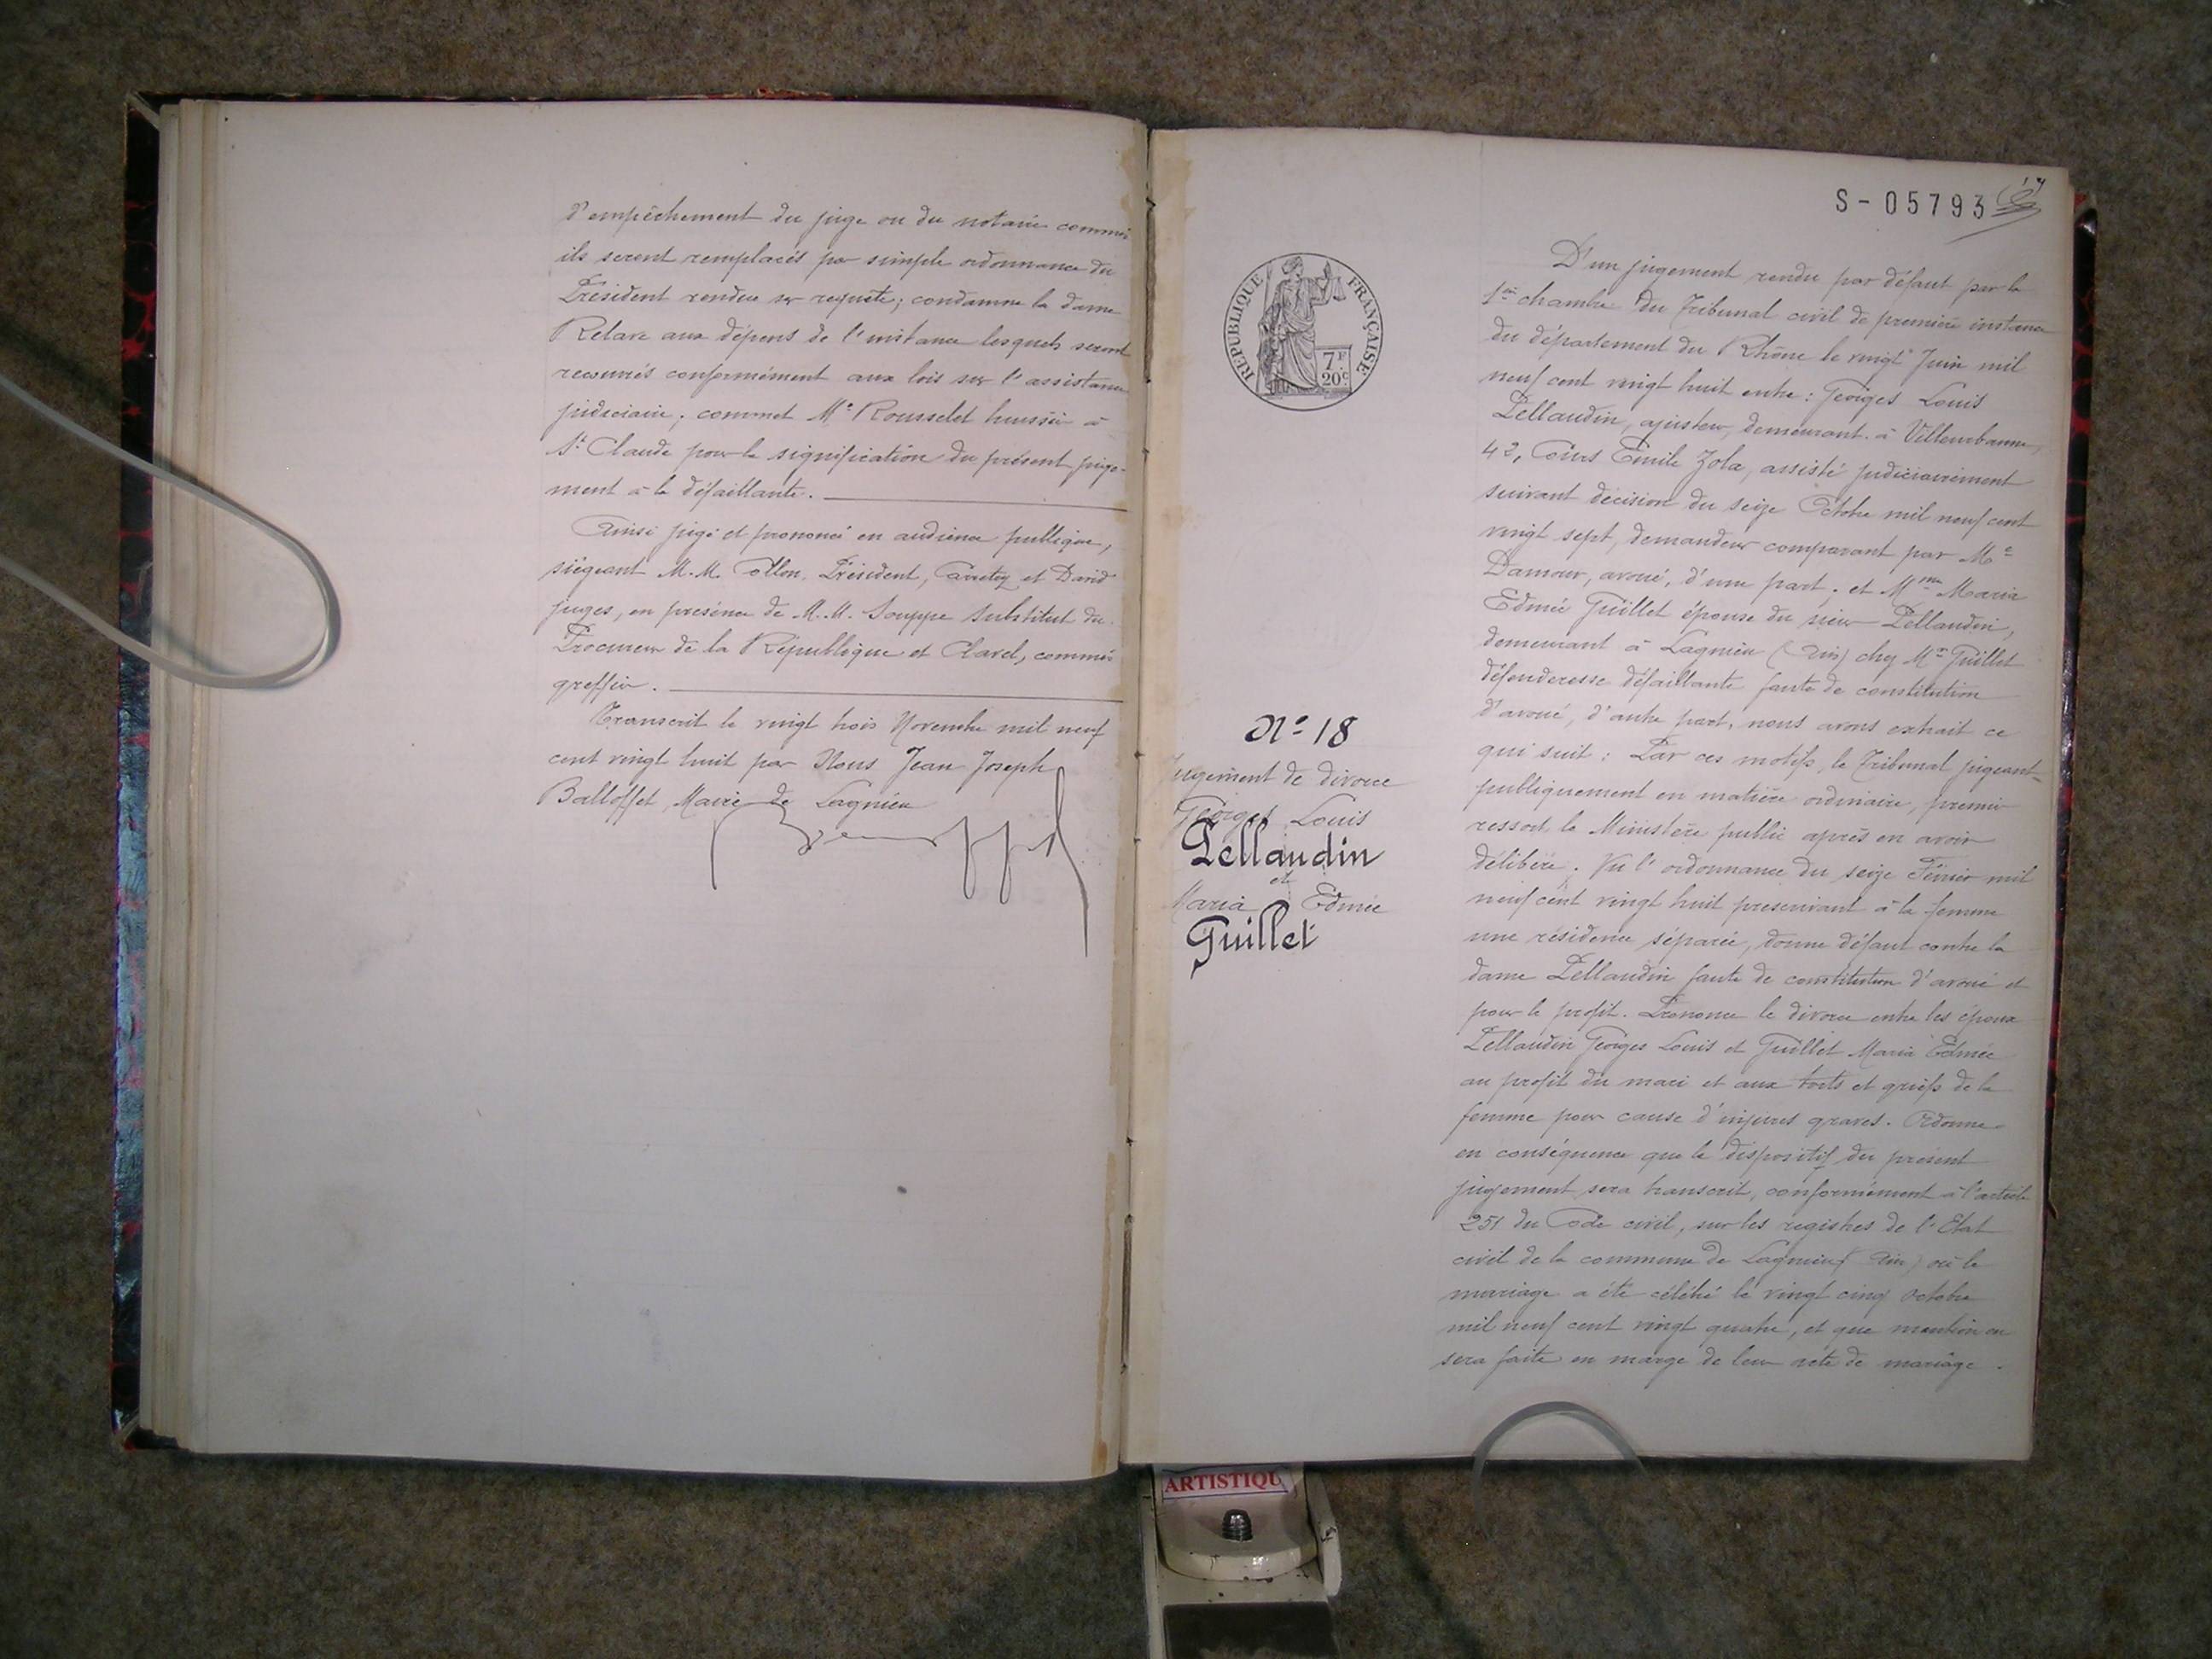 d'empêchement du juge ou du notaire commis
ils seront remplacés par simple ordonnance du
Président rendue sur requête; condamne la dame
Relave aux dépens de l'instance lesquels seront
recouvrés conformément aux lois sur l'assistance
judiciaire; commet Me Rousselet huissier à
St Claude pour la signification du présent juge-
ment à la défaillante.
Ainsi jugé et prononcé en audience publique,
siégeant M.M. Ollon, Président, et David
juges, en présence de M.M. Souppe Substitut du
Procureur de la République et Clavel, commis
greffier.
Transcrit le vingt trois Novembre mil neuf
cent vingt huit par Nous Jean Joseph
Balloffet, Maire de Lagnieu
S-05793
17
RÉPUBLIQUE FRANÇAISE
7F
20c
No 18
Jugement de divorce
Georges Louis
Pellaudin
et
Maria Edmée
Guillet
D'un jugement rendu par défaut par la
1re chambre du Tribunal civil de première instance
du département du Rhône le vingt Juin mil
neuf cent vingt huit entre : Georges Louis
Pellaudin, ajusteur, demeurant à Villeurbanne,
42, Cours Emile Zola, assisté judiciairement
suivant décision du seize Octobre mil neuf cent
vingt sept, demandeur comparant par Me
Damour, avoué, d'une part, et Mme Maria
Edmée Guillet épouse du sieur Pellaudin,
demeurant à Lagnieu (Ain) chez Mr Guillet
défenderesse défaillante faute de constitution
d'avoué, d'autre part, nous avons extrait ce
qui suit : Par ces motifs, le Tribunal jugeant
publiquement en matière ordinaire, premier
ressort, le Ministère public après en avoir
délibéré. Vu l'ordonnance du seize Février mil
neuf cent vingt huit prescrivant à la femme
une résidence séparée, donne défaut contre la
dame Pellaudin faute de constitution d'avoué et
pour le profit. Prononce le divorce entre les époux
Pellaudin Georges Louis et Guillet Maria Edmée
au profit du mari et aux torts et griefs de la
femme pour cause d'injures graves. Ordonne
en conséquence que le dispositif du présent
jugement sera transcrit, conformément à l'article
251 du Code civil, sur les registres de l'Etat
civil de la commune de Lagnieu (Ain) où le
mariage a été célébré le vingt cinq Octobre
mil neuf cent vingt quatre, et que mention en
sera faite en marge de leur acte de mariage.
ARTISTIQU